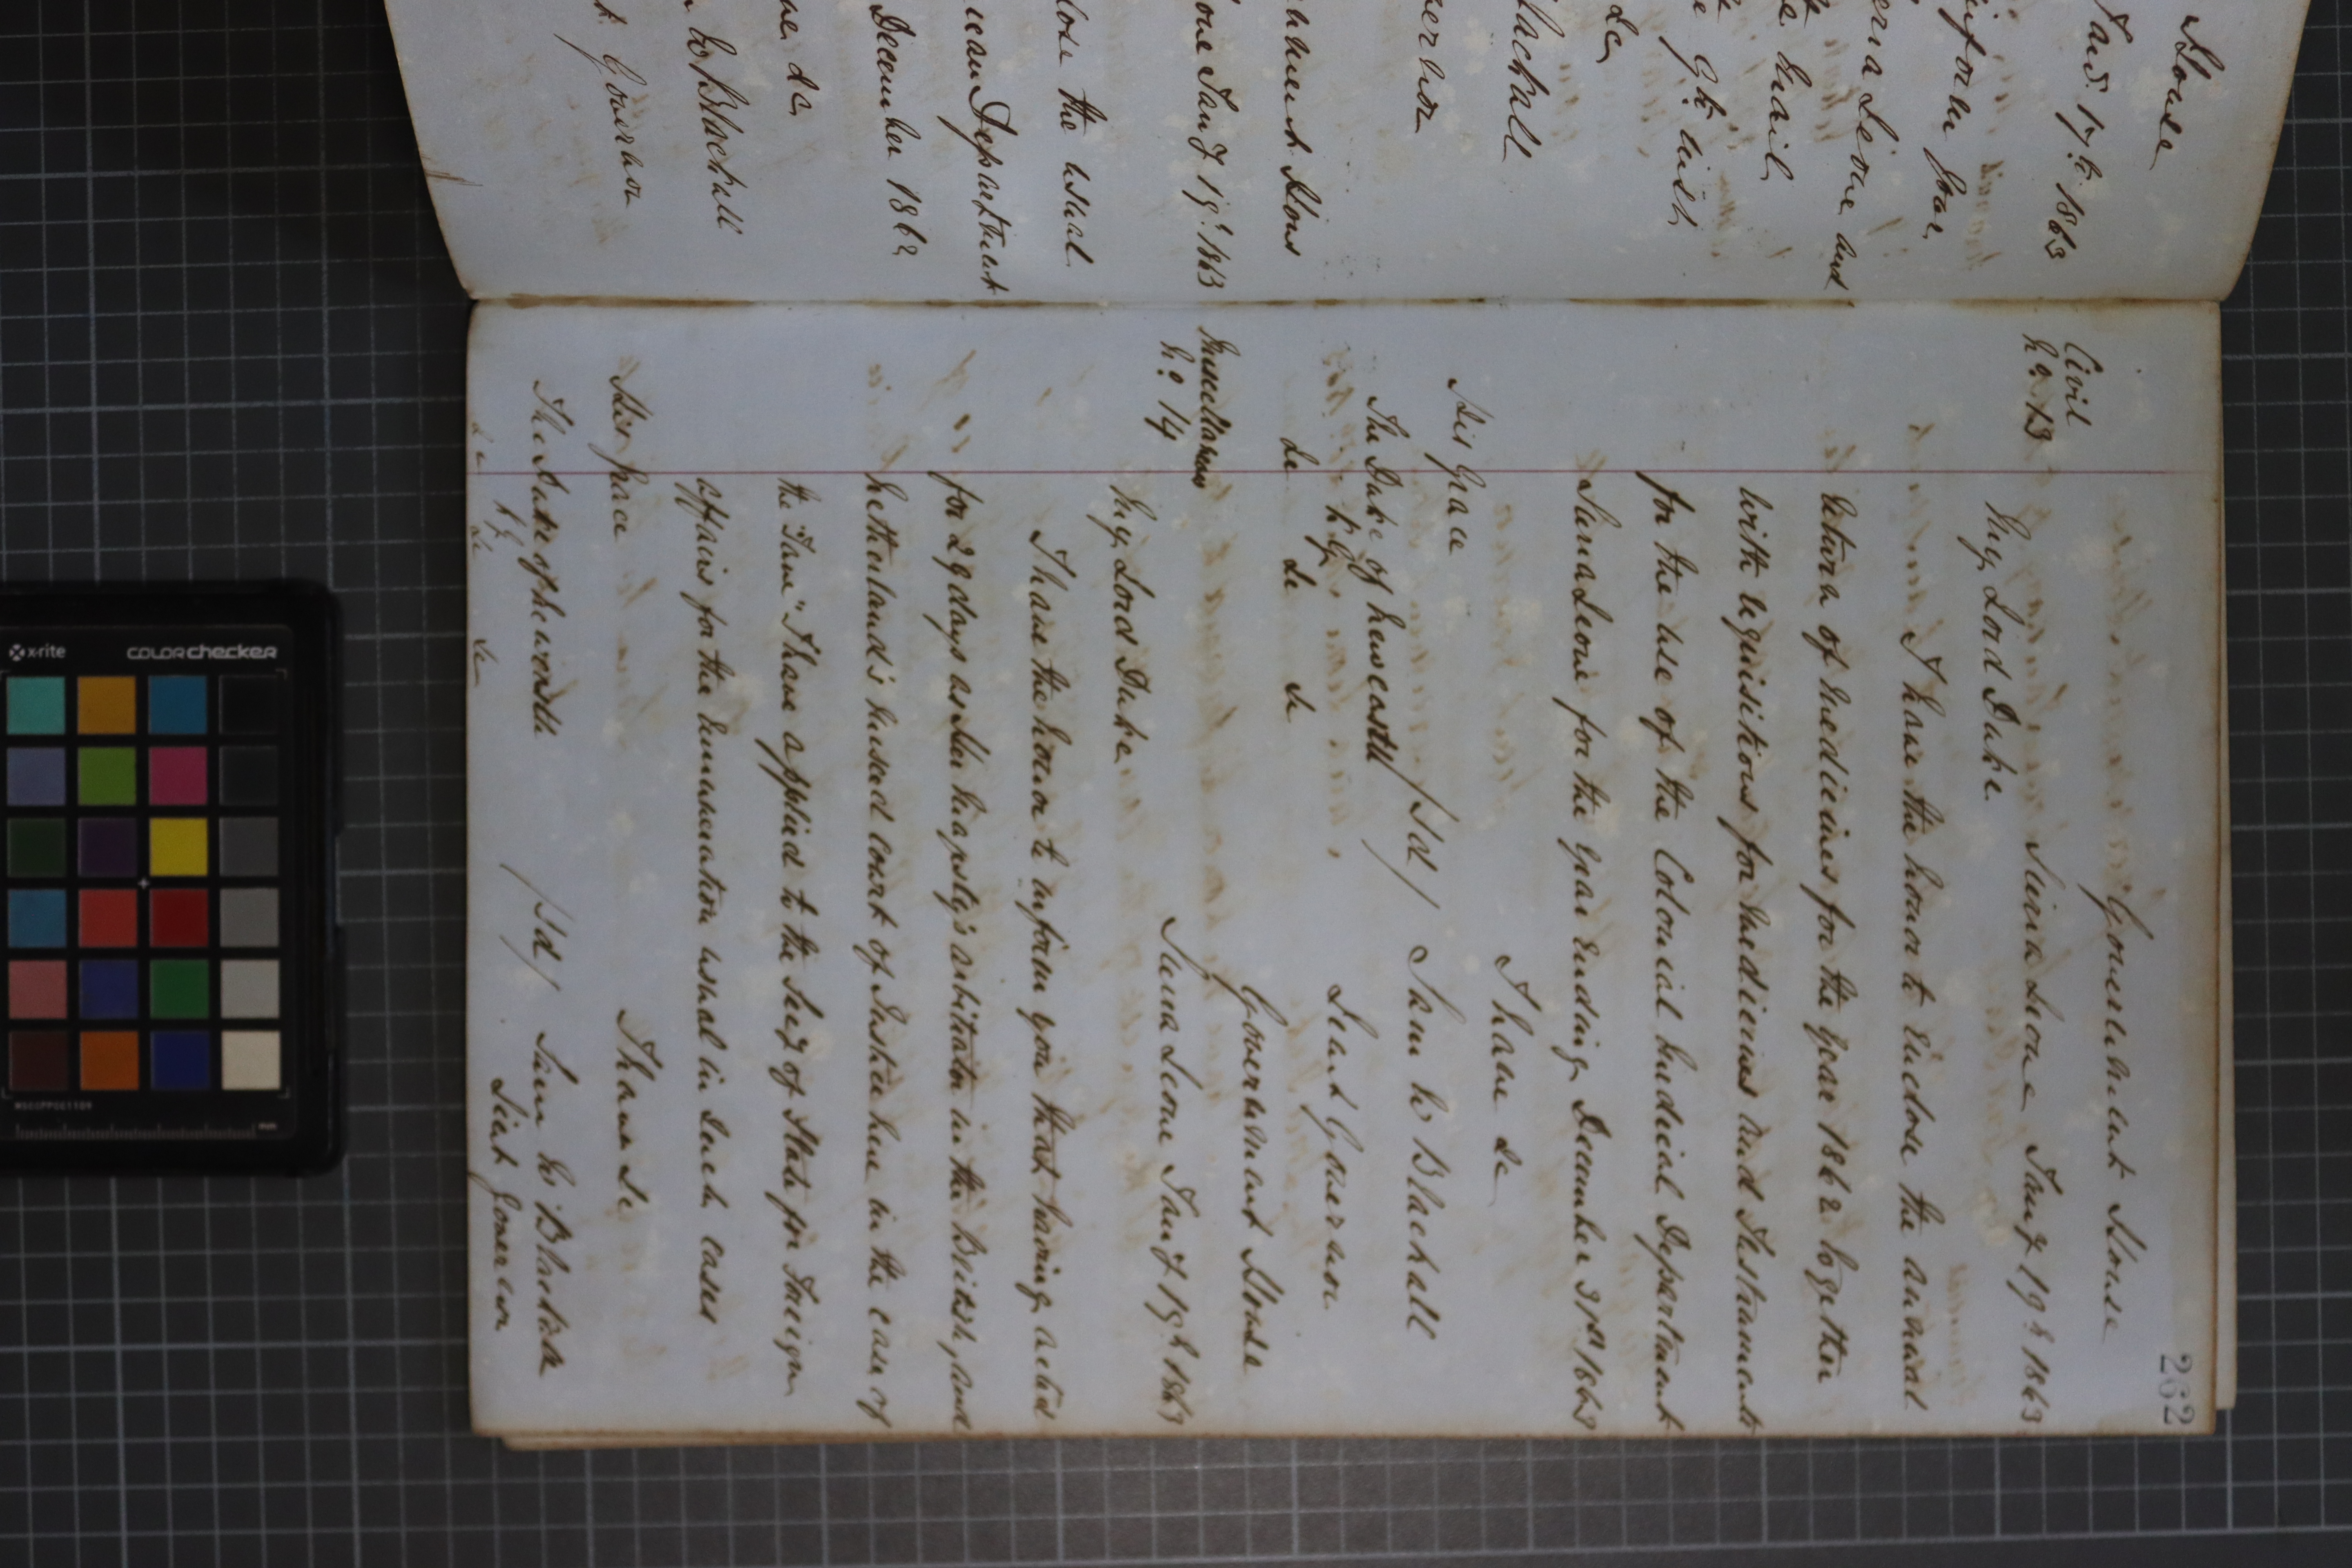 House
Jany. 17th. 1863
inform your
erra Leone and
mail
9th. inst.
&c
Blackall
ernor
nment House
one Jany 19th. 1863
lose the usual
ican Department
December 1862
ve &c
m W Blackall
t. Governor
262
Government House
Civil
No. 13
Sierra Leone Jany 19th 1863
My Lord Duke.
I have the honor to enclose the annual
return of medicines for the year 1862 together
with requisitions for medicines and Instruments
for the use of the Colonial medical Department
Sierra Leone for the year ending December 31st 1863
I have &c
His Grace
/Sd/ Sam W Blackall
The Duke of Newcastle
K.G.
Lieut Governor
&c &c &c
Government House
Miscellaneous
No. 14
Sierra Leone Jany 19th 1863
My Lord Duke.
I have the honor to inform you that having acted
for 29 days as Her Majesty's arbitrator in the British and
Netherland's mixed court of Justice here in the case of
the "Jane" I have applied to the Secy of State for Foreign
affairs for the remuneration usual in such cases
I have &c
His Grace
The Duke of Newcastle
/Sd/ Sam W Blackall
K.G.
Lieut Governor
&c &c &c
x-rite
colorchecker